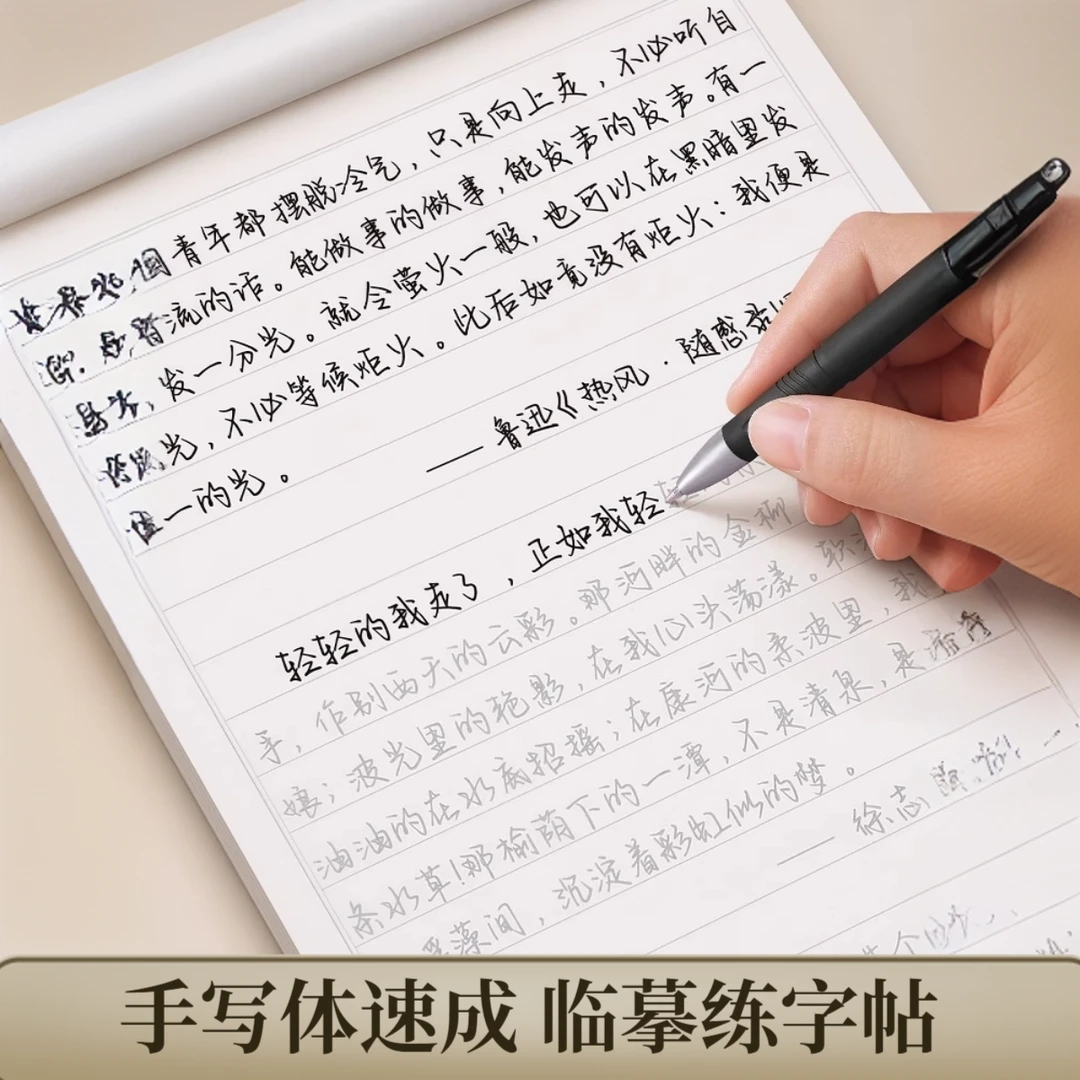 青年都摆脱冷气，只是向上走，不必听自
流的话。能做事的做事，能发声的发声。有一
，发一分光。就令萤火一般，也可以在黑暗里发
光，不必等候炬火。此后如竟没有炬火：我便是
一的光。
——鲁迅《热风·随感录
轻轻的我走了，正如我轻
手，作别西天的云彩。那河畔的金柳
娘；波光里的艳影，在我心头荡漾。软
油油的在水底招摇；在康河的柔波里，我
条水草！那榆荫下的一潭，不是清泉，是
藻间，沉淀着彩虹似的梦。
——徐志
手写体速成 临摹练字帖